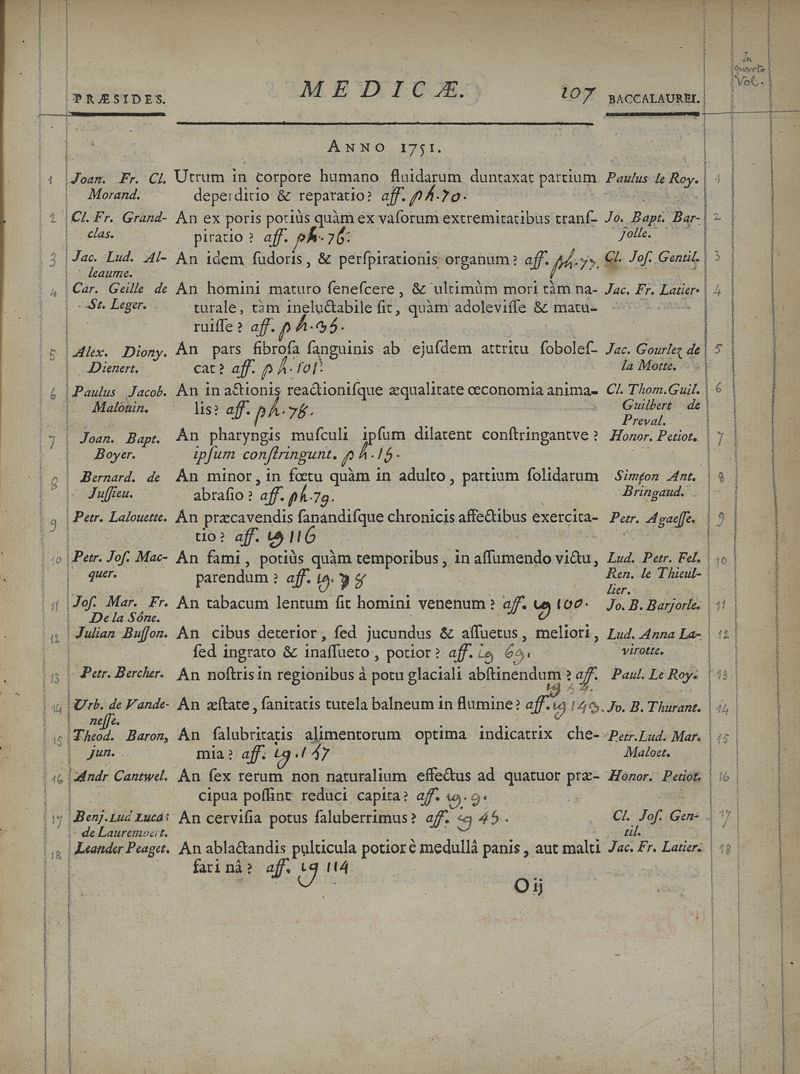 In
quarto
Vol.
PRÆSIDES. MEDICÆ. 107 BACCALAUREI.
ANNO 1751.
1 Joan. Fr. Cl. Utrum in corpore humano fluidarum duntaxat partium Paulus le Roy. 1
Morand. deperditio & reparatio? aff. ph. 70.
2 Cl. Fr. Grand- An ex poris potiùs quàm ex vaſorum extremitatibus tranſ- Jo. Bapt. Bar- 2
clas. piratio ? aff. ph. 76. jolle.
3 Jac. Lud. Al- An idem ſudoris, & perſpirationis organum? aff. ph. 77. Cl. Joſ. Gentil. 3
leaume.
4 Car. Geille de An homini maturo ſeneſcere, & ultimùm mori tàm na- Jac. Fr. Latier. 4
St. Leger. turale, tàm ineluctabile ſit, quàm adoleviſſe & matu-
ruiſſe ? aff. ph.
5 Alex. Diony. An pars fibroſa ſanguinis ab ejuſdem attritu ſoboleſ- Jac. Gourlez de 5
Dienert. cat? aff. ph. la Motte.
6 Paulus Jacob. An in actionis reactioniſque æqualitate œconomia anima- Cl. Thom. Guil. 6
Malouin. lis? aff. ph. 78. Guilbert de
Preval.
7 Joan. Bapt. An pharyngis muſculi ipſum dilatent conſtringantve ? Honor. Petiot. 7
Boyer. ipſum conſtringunt. ph. 15.
8 Bernard. de An minor, in fœtu quàm in adulto, partium ſolidarum Simeon Ant. 8
Juſſieu. abraſio ? aff. ph. 79. Bringaud.
9 Petr. Lalouette. An præcavendis ſanandiſque chronicis affectibus exercita- Petr. Agaeſſe. 9
tio? aff. yg 116
10 Petr. Joſ. Mac- An fami, potiùs quàm temporibus, in aſſumendo victu, Lud. Petr. Fel. 10
quer. parendum ? aff. yg. Ren. le Thieul-
lier.
11 Joſ. Mar. Fr. An tabacum lentum ſit homini venenum? aff. yg 100. Jo. B. Barjorle. 11
De la Sône.
12 Julian Buſſon. An cibus deterior, ſed jucundus & aſſuetus, meliori, Lud. Anna La- 12
ſed ingrato & inaſſueto, potior? aff. yg virotte.
13 Petr. Bercher. An noſtris in regionibus à potu glaciali abſtinendum? aff. Paul. Le Roy. 13
yg
14 Urb. de Vande- An æſtate, ſanitatis tutela balneum in flumine? aff. yg Jo. B. Thurant. 14
neſſe.
15 Theod. Baron, An ſalubritatis alimentorum optima indicatrix che- Petr. Lud. Mar. 15
jun. mia? aff. yg. 147 Maloet.
16 Andr Cantwel. An ſex rerum non naturalium effectus ad quatuor præ- Honor. Petiot. 16
cipua poſſint reduci capita? aff. yg. 9.
17 Benj. Lud Lucas An cerviſia potus ſaluberrimus? aff. yg 45. Cl. Joſ. Gen- 17
de Lauremoert. til.
18 Leander Peaget. An ablactandis pulticula potior è medullâ panis, aut malti Jac. Fr. Latier. 18
farinâ? aff. yg 114
O ij